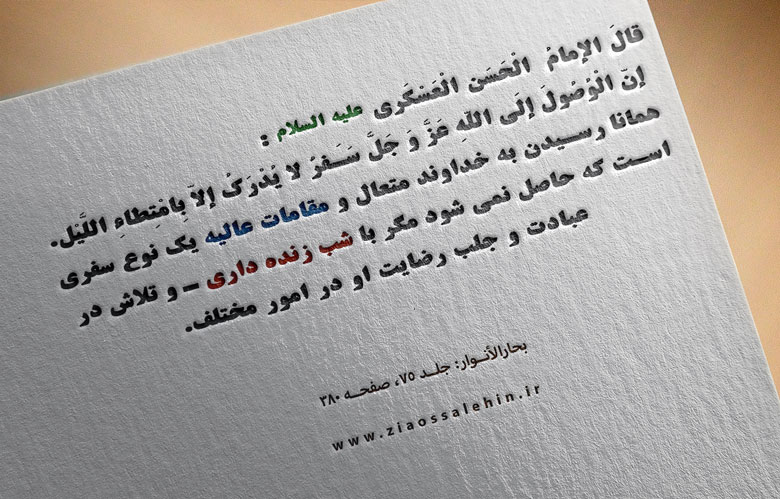 قالَ الإمامُ الْحَسَنِ الْعَسْکَری علیه السلام :
إنّ الْوُصُولَ إلَی اللّهِ عَزَّ وَ جَلَّ سَفَرٌ لا یُدْرَکُ إلاّ بِامْتِطاءِ اللَّیْل.
همانا رسیدن به خداوند متعال و مقامات عالیه یک نوع سفری
است که حاصل نمی شود مکر با شب زنده داری - و تلاش در
عبادت و جلب رضایت او در امور مختلف.
بحارالأنوار: جلد ۷۵، صفحه ۳۸۰
www.ziaossalehin.ir